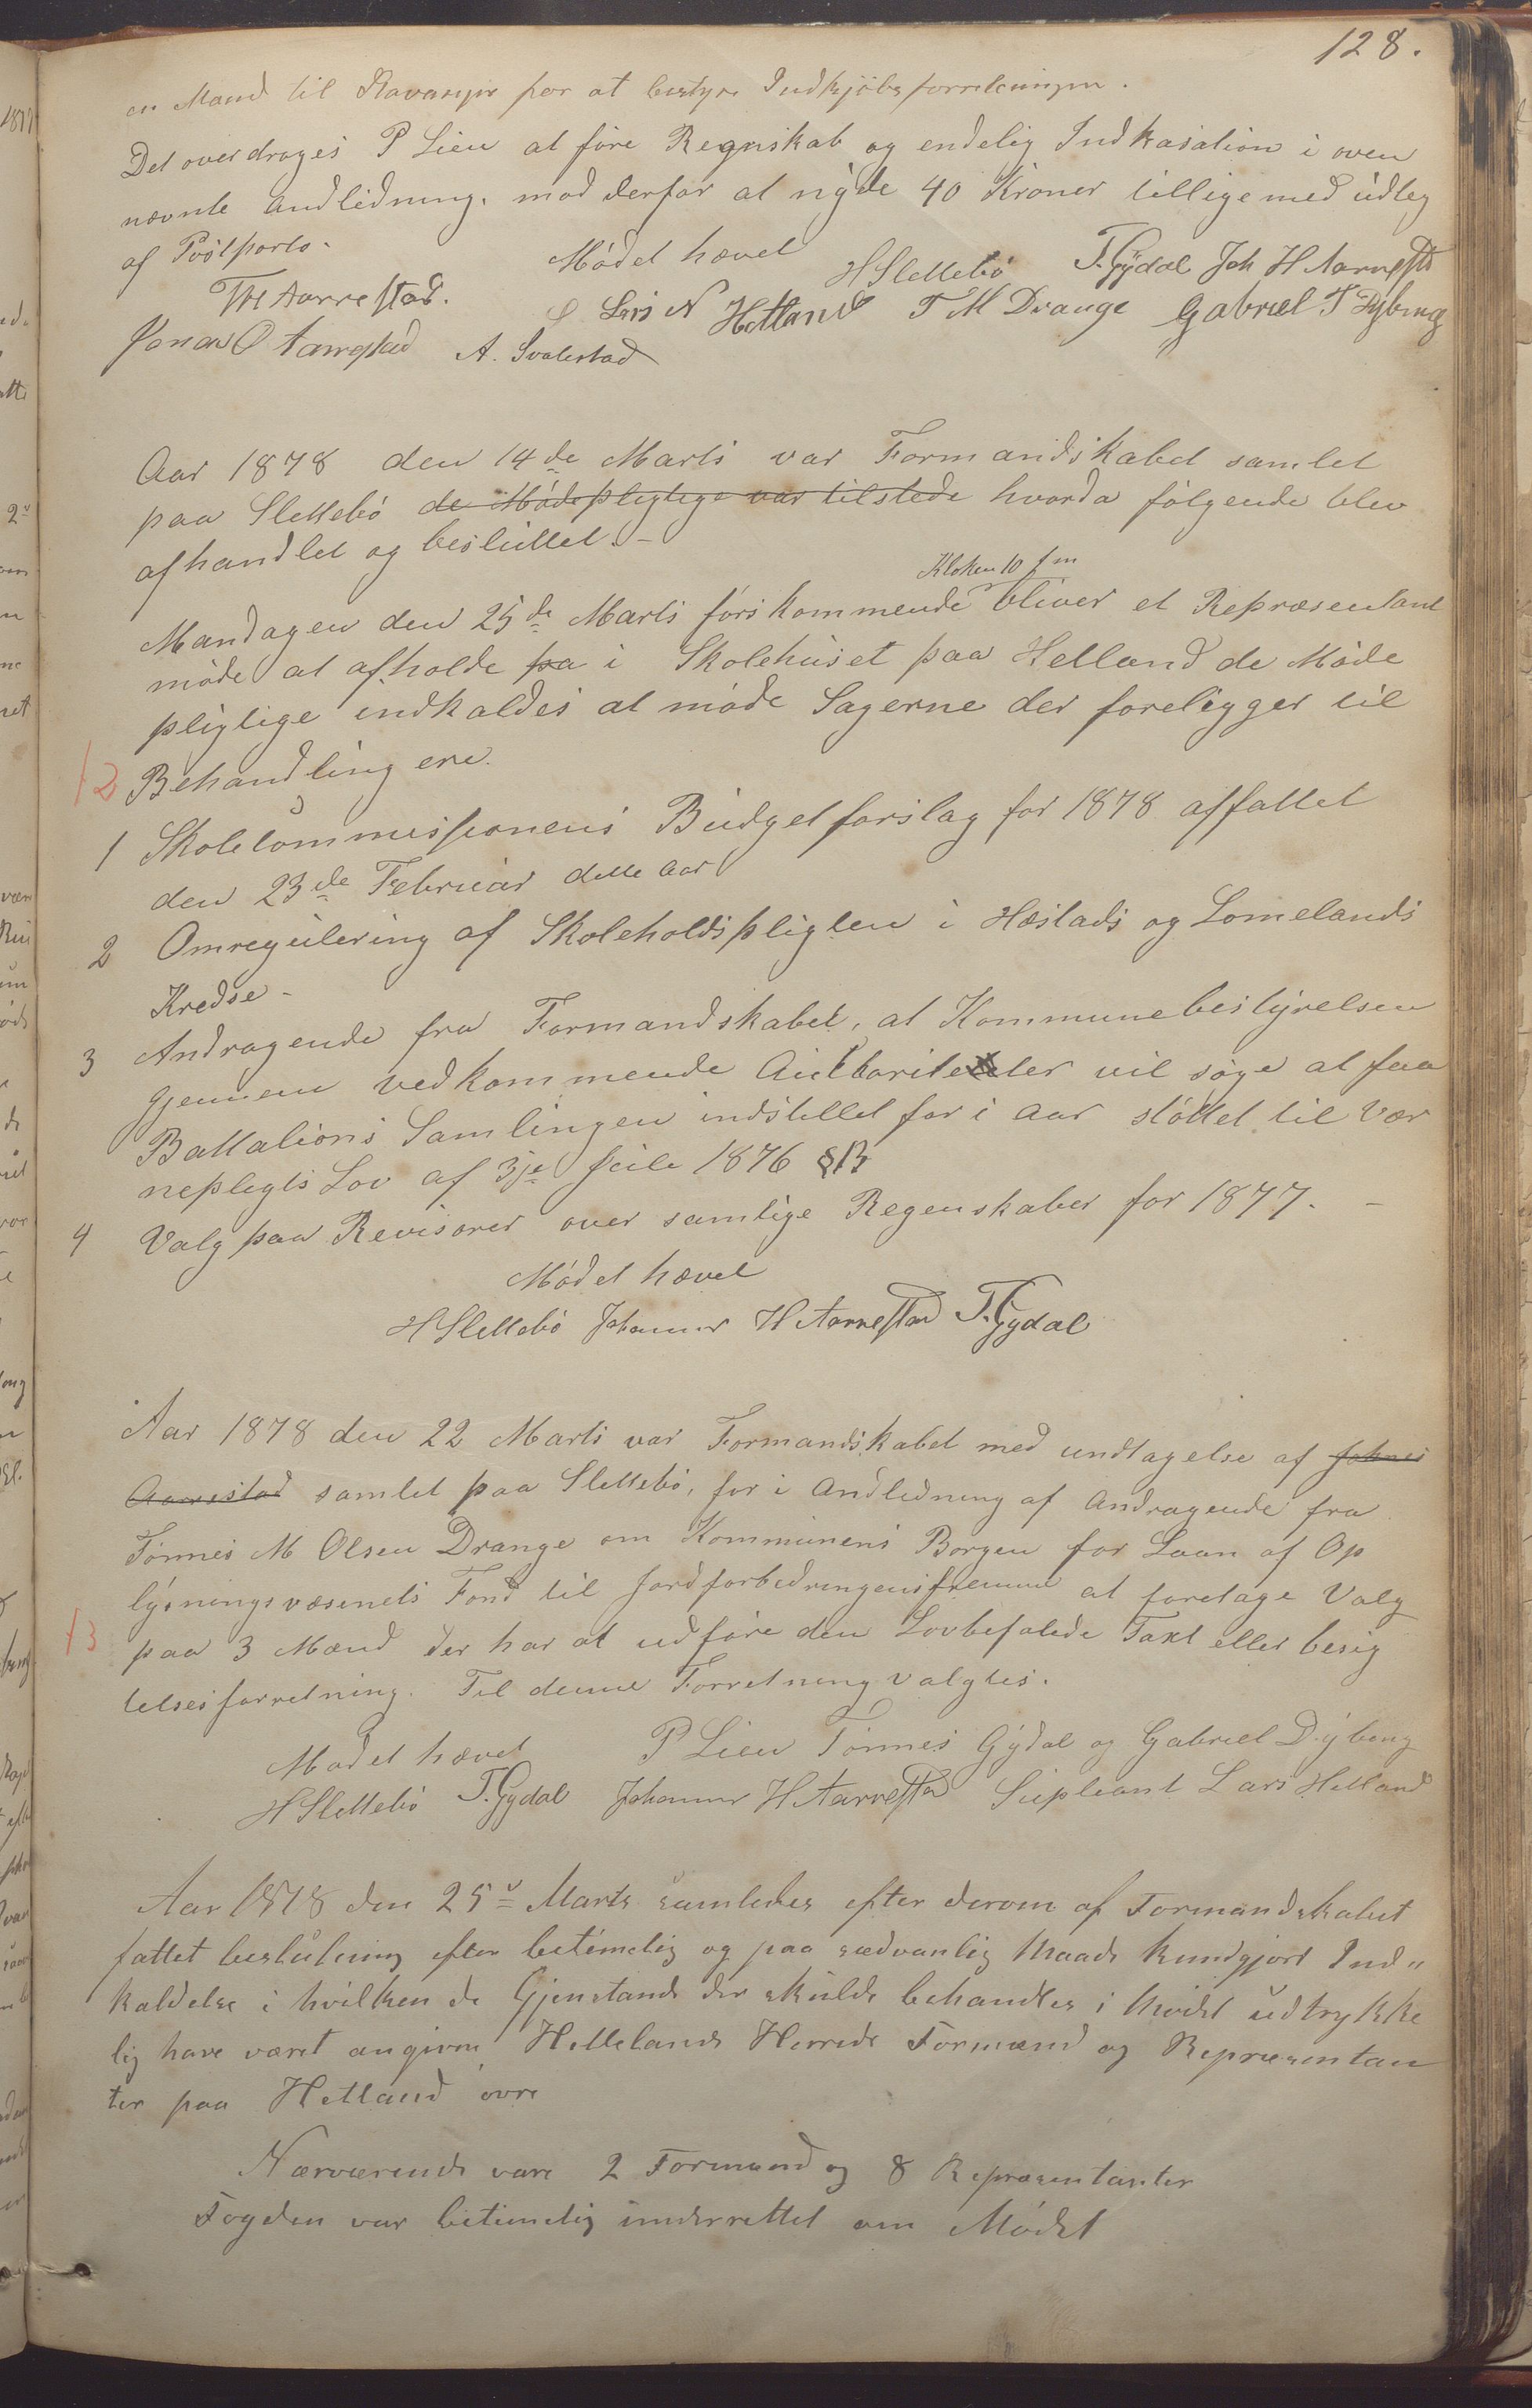 128.
en Mand til Stavanger for at bestyre Indkjöbsforretningen.
Det overdroges P Lien at före Regnskab og endelig Indkasation i oven
nævnte Andledning. mod derfor at nyde 40 Kroner tillige med udleg
af Postporto.
Mödet hævet HSlettebö T. Gydal Joh H Aarrestd
TH Aarrestad. Lars N Hetland T M Drange Gabriel T Dybing
Jonas O Aarrestad A. Svalestad
Aar 1878 den 14de Marts var Formandskabet samlet
paa Slettebö de Mödepligtige var tilstede hvorda fölgende blev
afhandlet og besluttet. -
Kloken 10 fm
Mandagen den 25de Marts förskommende bliver et Repræsentant
möde at afholde pa i Skolehuset paa Helland de Möde
pligtige indkaldes at möde Sagerne der foreligger til
12 Behandling ere.
1 Skolecommissionens Budgetforslag for 1878 affattet
den 23de Februar dette Aar
2 Omregulering af Skoleholdspligten i Hæstads og Lomelands
Kredse -
3 Andragende fra Formandskabet, at Kommunebestyrelsen
gjennem vedkommende Auctoriteter vil söge at faa
Battalions Samlingen indstillet for i Aar stöttet til Vær
nepligts Lov af 3je Juli 1876 §13
4 Valg paa Revisorer over samtlige Regenskaber for 1877. -
Mödet hævet
HSlettebö Johannes H Aarrestad T. Gydal
Aar 1878 den 22 Marts var Formandskabet med undtagelse af Johnes
Aarrestad samlet paa Slettebö, for i Andledning af Andragende fra
Tönnes M Olsen Drange om Kommunens Borgen for Laan af Op
lysningsvæsenets Fond til Jordforbedringens fremme at foretage Valg
13 paa 3 Mænd der har at udföre den Lovbefalede Taxt eller besig
telsesforretning. Til denne Forretning valgtes.
Mödet hævet P Lien Tönnes Gydal og Gabriel Dybing
HSlettebö T. Gydal Johannes H Aarrestad Supleant Lars Hetland
Aar 1878 den 25d Marts samledes efter derom af Formandskabet
fattet beslutning efter betimelig og paa sædvanlig Maade kundgjort Ind"
kaldelse i hvilken de Gjenstande der skulde behandles i Mödet udtrykke
lig have været angivne Hellelands Herreds Formænd og Repræsentan
ter paa Hetland övre
Nærværende vare 2 Formænd og 8 Repræsentanter
Fogden var betimelig underrettet om Mödet